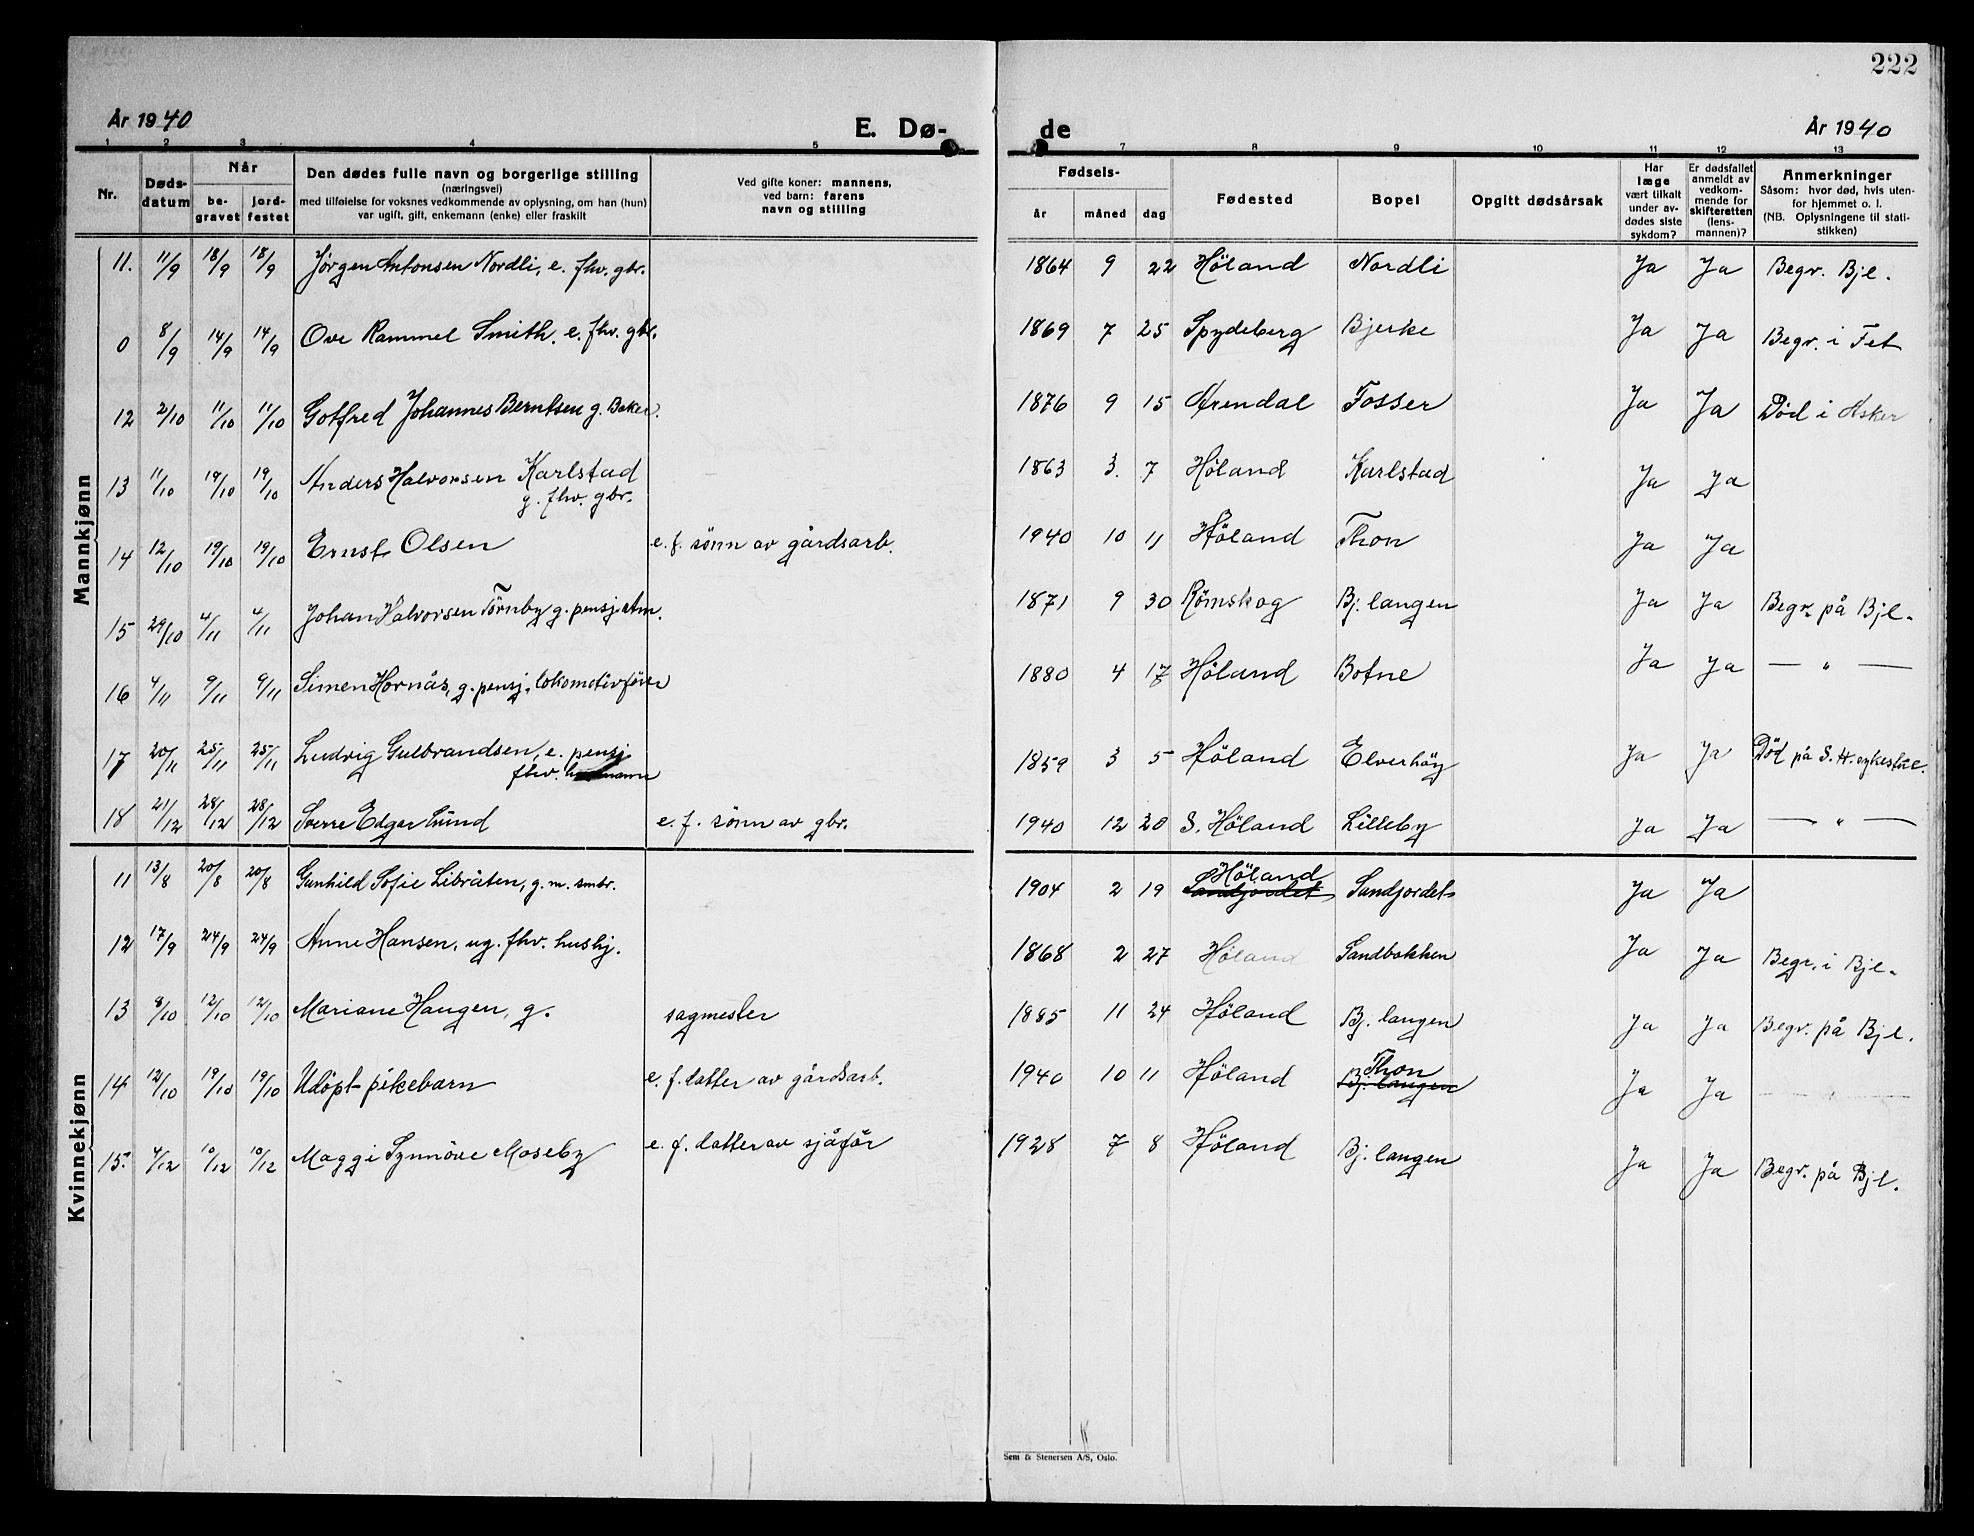 222
År 1940 E. Dø- de År 1940
1 2 3 4 5 7 8 9 10 11 12 13
Nr.
Døds-
datum
Når
be-
gravet
jord-
festet
Den dødes fulle navn og borgerlige stilling
(næringsvei)
med tilføielse for voksnes vedkommende av oplysning, om han (hun)
var ugift, gift, enkemann (enke) eller fraskilt
Ved gifte koner: mannens,
ved barn: farens
navn og stilling
Fødsels-
år måned dag
Fødested
Bopel
Opgitt dødsårsak
Har
læge
vært tilkalt
under av-
dødes siste
sykdom?
Er dødsfallet
anmeldt av
vedkom-
mende for
skifteretten
(lens-
mannen)?
Anmerkninger
Såsom: hvor død, hvis uten-
for hjemmet o. l.
(NB. Oplysningene til stati-
stikken)
Mannkjønn
11. 11/9 18/9 18/9 Jørgen Antonsen Nordli, e. fhv. gbr. 1864 9 22 Höland Nordli Ja Ja Begr. Bjl.
0 8/9 14/9 14/9 Ove Rammel Smith, e. fhv. gbr. 1869 7 25 Spydeberg Bjerke Ja Ja Begr. i Fet
12 2/10 11/10 11/10 Gotfred Johannes Berntsen g. Baker. 1876 9 15 Arendal Fosser Ja Ja Död i Asker
13 11/10 19/10 19/10 Anders Halvorsen Karlstad
g. fhv. gbr. 1863 3. 7 Höland Karlstad Ja Ja
14 12/10 19/10 19/10 Ernst Olsen e. f. sönn av gårdsarb. 1940 10 11 Höland Thon Ja Ja
15 29/10 4/11 4/11 Johan Halvorsen Törnby g. pensj. 1871 9 30 Römskog Bj. langen Ja Ja Begr. på Bjl.
16 4/11 9/11 9/11 Simen Hornås, g. pensj. lokomotivförer 1880 4 17 Höland Botne Ja Ja — " —
17 20/11 25/11 25/11 Ludvig Gulbrandsen, e. pensj
fhv. 1859 3 5 Höland Elverhöy Ja Ja Död på S. H. sykestue.
18 21/12 28/12 28/12 Sverre Edgar Lund e. f. sönn av gbr. 1940 12 20 S. Höland Lilleby Ja Ja — " —
Kvinnekjønn
11 13/8 20/8 20/8 Gunhild Sofie Libråten, g. m. smbr. 1904 2 19 Höland
Sandjordet Sandjordet Ja Ja
12 17/9 24/9 24/9 Anne Hansen, ug. fhv. hushj. 1868 2 27 Höland Sandbakken Ja Ja Begr. i Bjl.
13 8/10 12/10 12/10 Mariane Haugen, g. sagmester 1885 11 24 Höland Bj. langen Ja Ja Begr. på Bjl.
14 12/10 19/10 19/10 Udöpt pikebarn e. f. datter av gårdsarb. 1940 10 11 Höland Thon
Bj. langen Ja Ja — " —
15. 4/12 10/12 10/12 Maggi Synnöve Moseby e. f. datter av sjåför 1928 7 8 Höland Bj. langen Ja Ja Begr. på Bjl.
Sem & Stenersen A/S, Oslo.